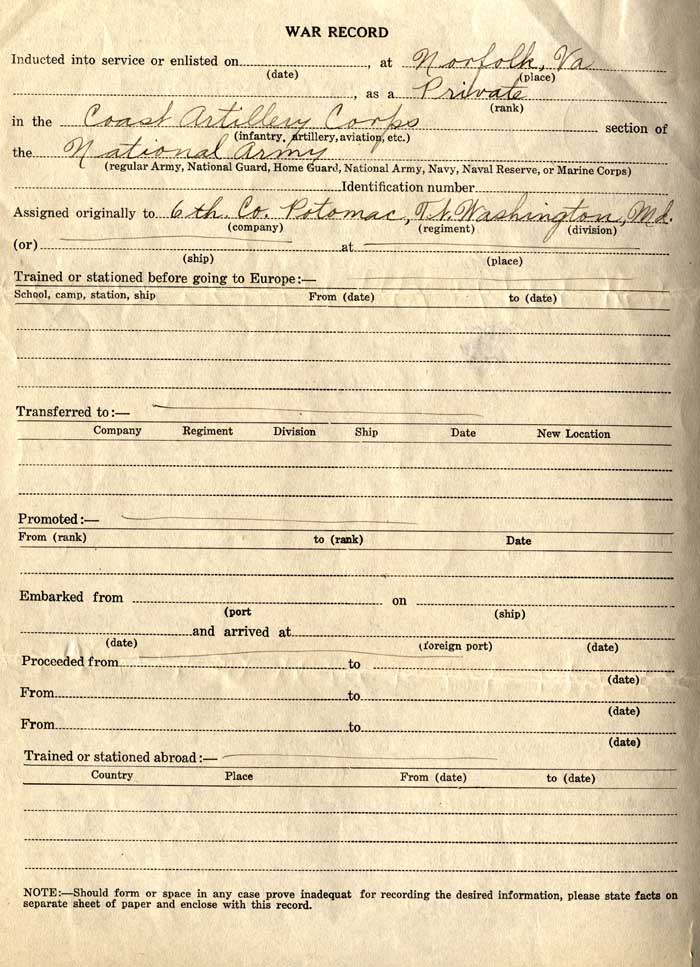 WAR RECORD
Inducted into service or enlisted on , at Norfolk, Va
(date) (place)
, as a Private
(rank)
in the Coast Artillery Corps section of
(infantry, artillery, aviation, etc.)
the National Army
(regular Army, National Guard, Home Guard, National Army, Navy, Naval Reserve, or Marine Corps)
Identification number
Assigned originally to 6th. Co. Potomac, Ft. Washington, Md.
(company) (regiment) (division)
(or) at
(ship) (place)
Trained or stationed before going to Europe:—
School, camp, station, ship From (date) to (date)
Transferred to:—
Company Regiment Division Ship Date New Location
Promoted:—
From (rank) to (rank) Date
Embarked from on
(port (ship)
and arrived at
(date) (foreign port) (date)
Proceeded from to
(date)
From to
(date)
From to
(date)
Trained or stationed abroad:—
Country Place From (date) to (date)
NOTE:—Should form or space in any case prove inadequat for recording the desired information, please state facts on
separate sheet of paper and enclose with this record.